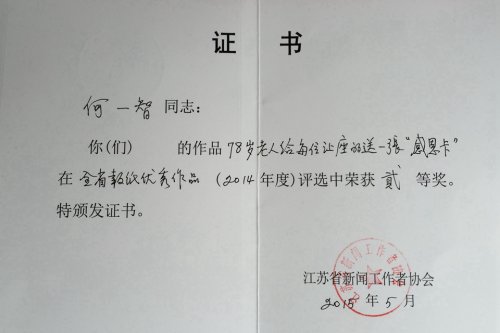 证 书
何一智 同志：
你(们) 的作品 78岁老人给每位让座的送一张“感恩卡”
在 全省报纸优秀作品 (2014年度)评选中荣获 贰 等奖。
特颁发证书。
江苏省新闻工作者协会
2015 年 5 月
江苏省新闻工作者协会